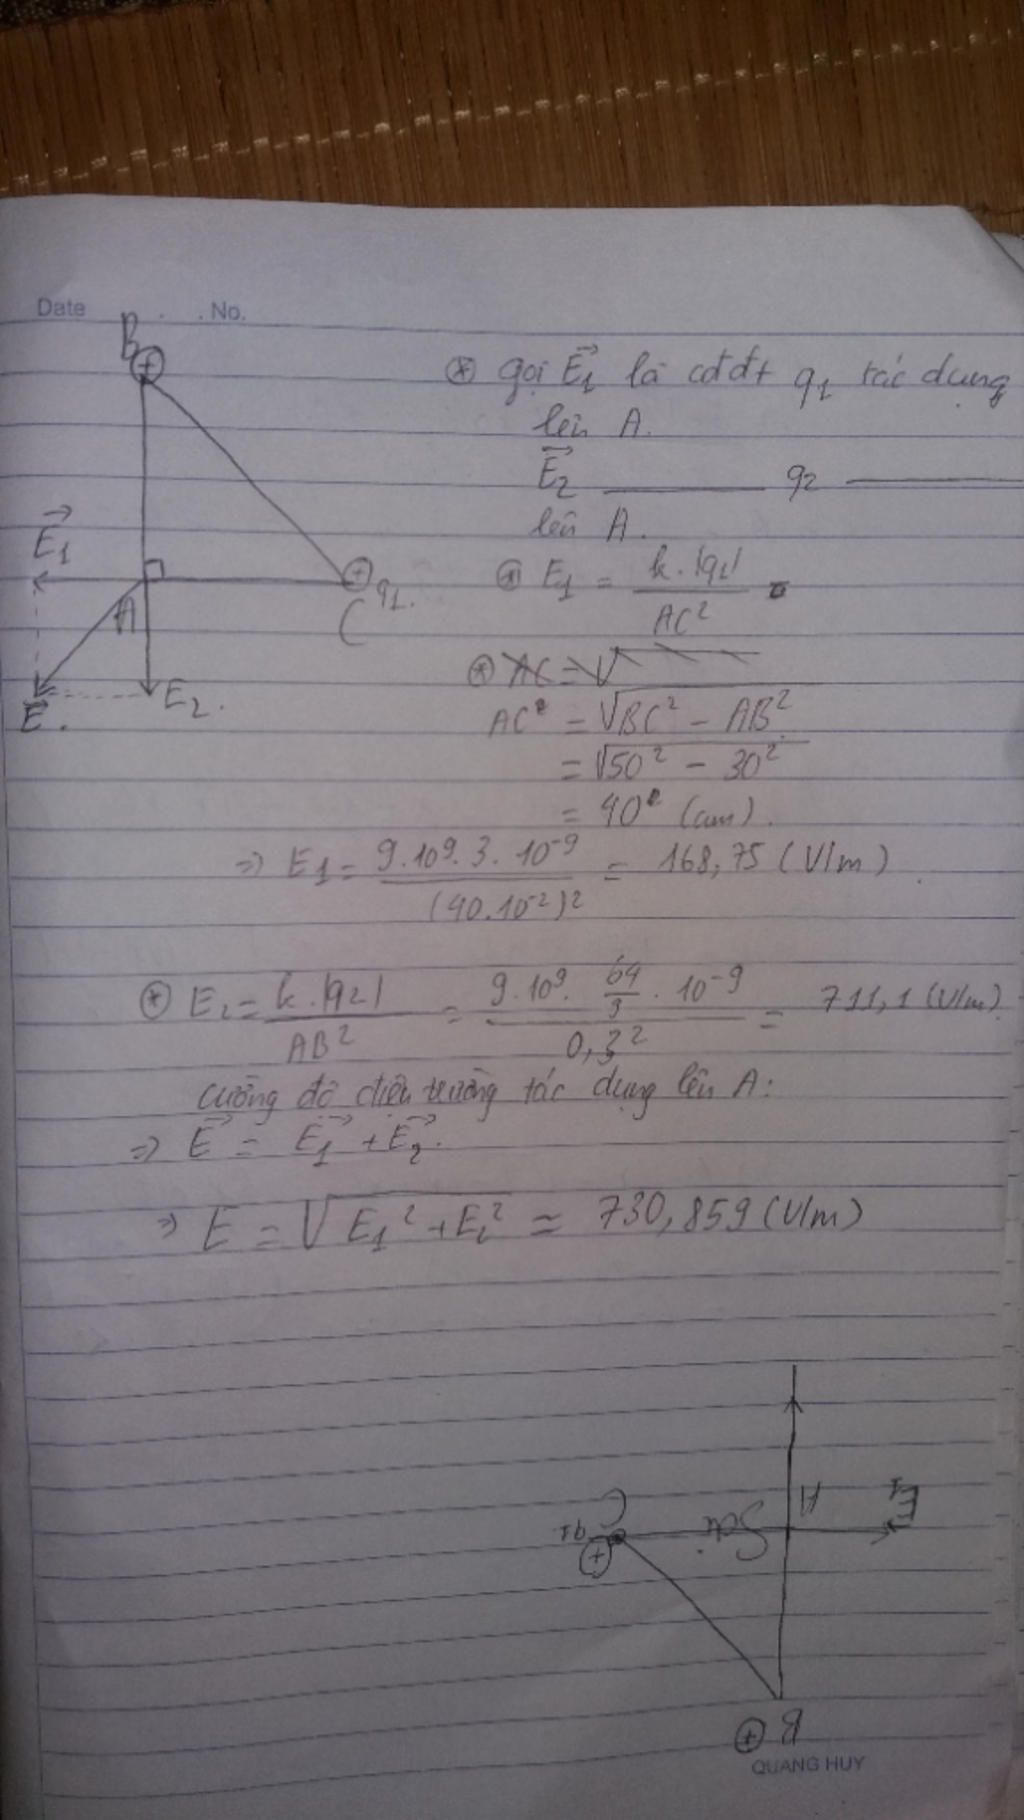 Date . . No.
B
⊕
⊛ gọi E₁⃗ là cđđt q₁ tác dụng
lên A.
E₂⃗ ——— q₂ ———
lên A.
E₁⃗
A
⊕ q₁.
C
E₂.
E⃗.
⊛ E₁ = k.|q₁| / AC²
⊛ AC = √
AC = √BC² - AB²
= √50² - 30²
= 40 (cm).
=> E₁ = 9.10⁹.3.10⁻⁹ / (40.10⁻²)² = 168,75 (V/m).
⊛ E₂ = k.|q₂| / AB² = 9.10⁹. 64/9 . 10⁻⁹ / 0,3² = 711,1 (V/m).
cường độ điện trường tác dụng lên A:
=> E⃗ = E₁⃗ + E₂⃗.
=> E = √E₁² + E₂² ≃ 730,859 (V/m)
E₁
A
Sai
C
q₁
⊕
⊕ B
QUANG HUY